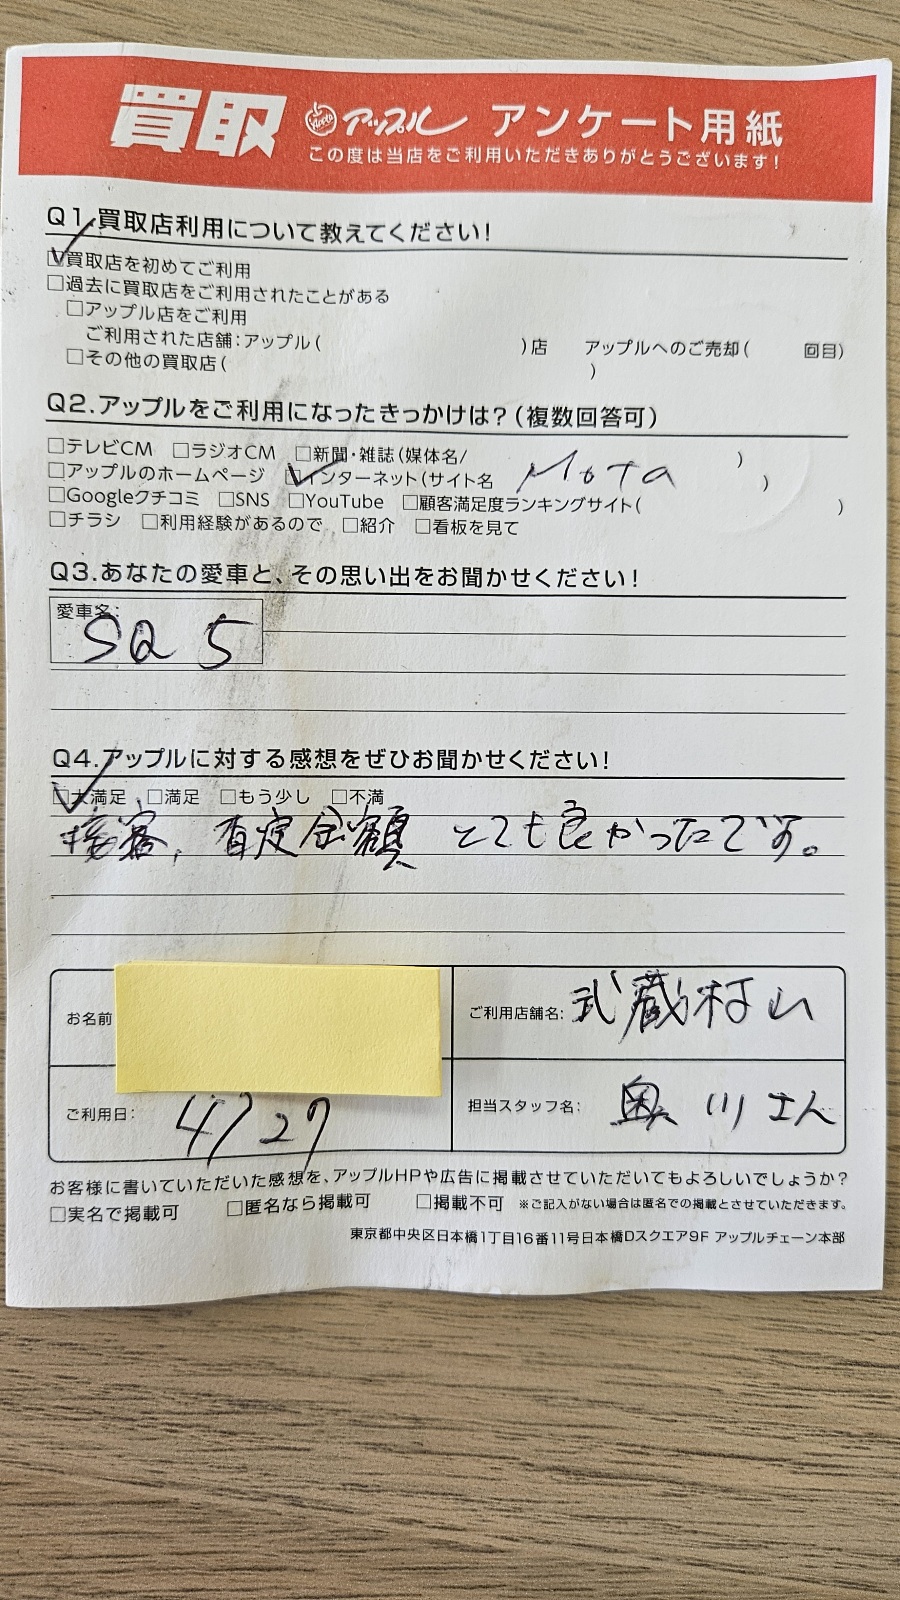 買取 Apple アップル アンケート用紙
この度は当店をご利用いただきありがとうございます！
Q1.買取店利用について教えてください！
☑買取店を初めてご利用
□過去に買取店をご利用されたことがある
□アップル店をご利用
ご利用された店舗：アップル（ ）店 アップルへのご売却（ 回目）
□その他の買取店（ ）
Q2.アップルをご利用になったきっかけは？（複数回答可）
□テレビCM □ラジオCM □新聞・雑誌（媒体名/ ）
□アップルのホームページ ☑インターネット（サイト名 MOTA ）
□Googleクチコミ □SNS □YouTube □顧客満足度ランキングサイト（ ）
□チラシ □利用経験があるので □紹介 □看板を見て
Q3.あなたの愛車と、その思い出をお聞かせください！
愛車名：
SQ5
Q4.アップルに対する感想をぜひお聞かせください！
☑大満足 □満足 □もう少し □不満
接客，査定金額 とても良かったです。
お名前
ご利用店舗名: 武蔵村山
ご利用日: 4/27
担当スタッフ名: 奥川さん
お客様に書いていただいた感想を、アップルHPや広告に掲載させていただいてもよろしいでしょうか？
□実名で掲載可 □匿名なら掲載可 □掲載不可 ※ご記入がない場合は匿名での掲載とさせていただきます。
東京都中央区日本橋1丁目16番11号日本橋Dスクエア9F アップルチェーン本部